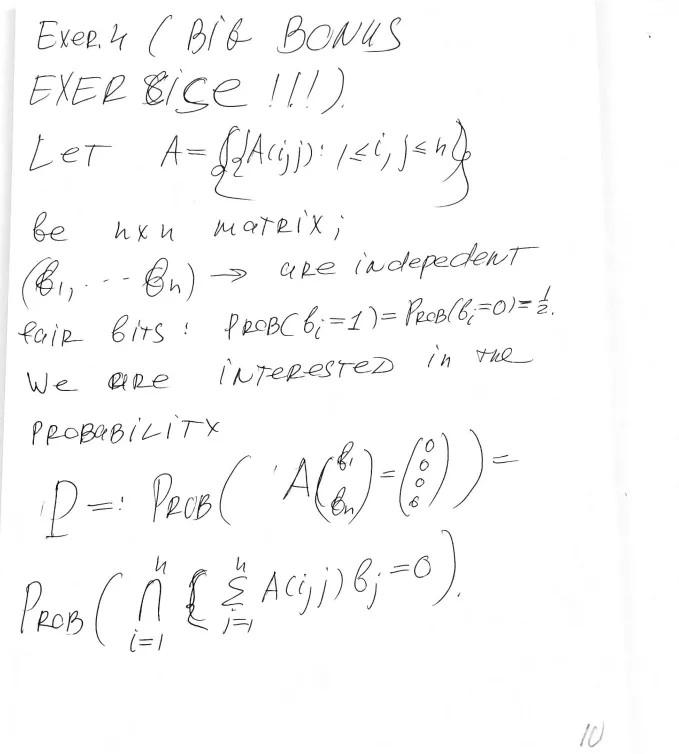 Exer. 4 ( BIG BONUS
EXERCISE !!!).
LET A = {A(i,j): 1 ≤ i, j ≤ n}
be n x n matrix;
(b₁, ... bₙ) → are indepedent
fair bits: PROB(bᵢ = 1) = PROB(bᵢ = 0) = 1/2.
We are interested in the
PROBABILITY
P =: PROB( A(b₁ bₙ) = (0 0 0 0) ) =
PROB( ∩ᵢ₌₁ⁿ { Σⱼ₌₁ⁿ A(i,j) bⱼ = 0 ).
10